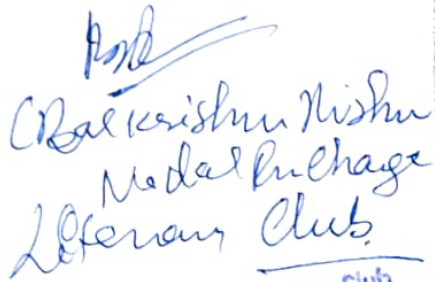 (Balkrishna Mishra
Nodal Incharge
Literary Club
Club